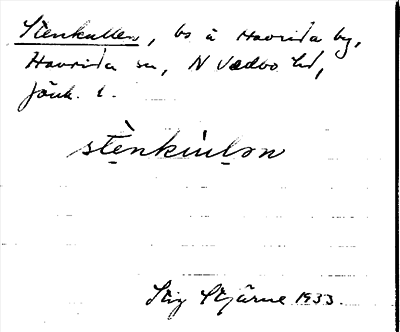 Stenkullen, bs å Havrida by,
Havrida sn, N Vedbo hd,
Jönk. l.
Stig Stjärne 1933.